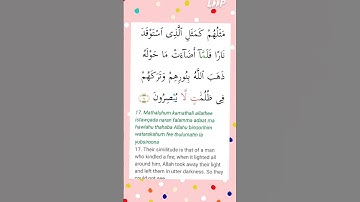 مَثَلُهُمْ كَمَثَلِ الَّذِى اسْتَوْقَدَ
نَارًا فَلَمَّآ أَضَآءَتْ مَا حَوْلَهُ
ذَهَبَ اللَّهُ بِنُورِهِمْ وَتَرَكَهُمْ
فِى ظُلُمَٰتٍ لَّا يُبْصِرُونَ
17. Mathaluhum kamathali allathee
istawqada naran falamma adaat ma
hawlahu thahaba Allahu binoorihim
watarakahum fee thulumatin la
yubsiroona
17. Their similitude is that of a man
who kindled a fire; when it lighted all
around him, Allah took away their light
and left them in utter darkness. So they
could not see.